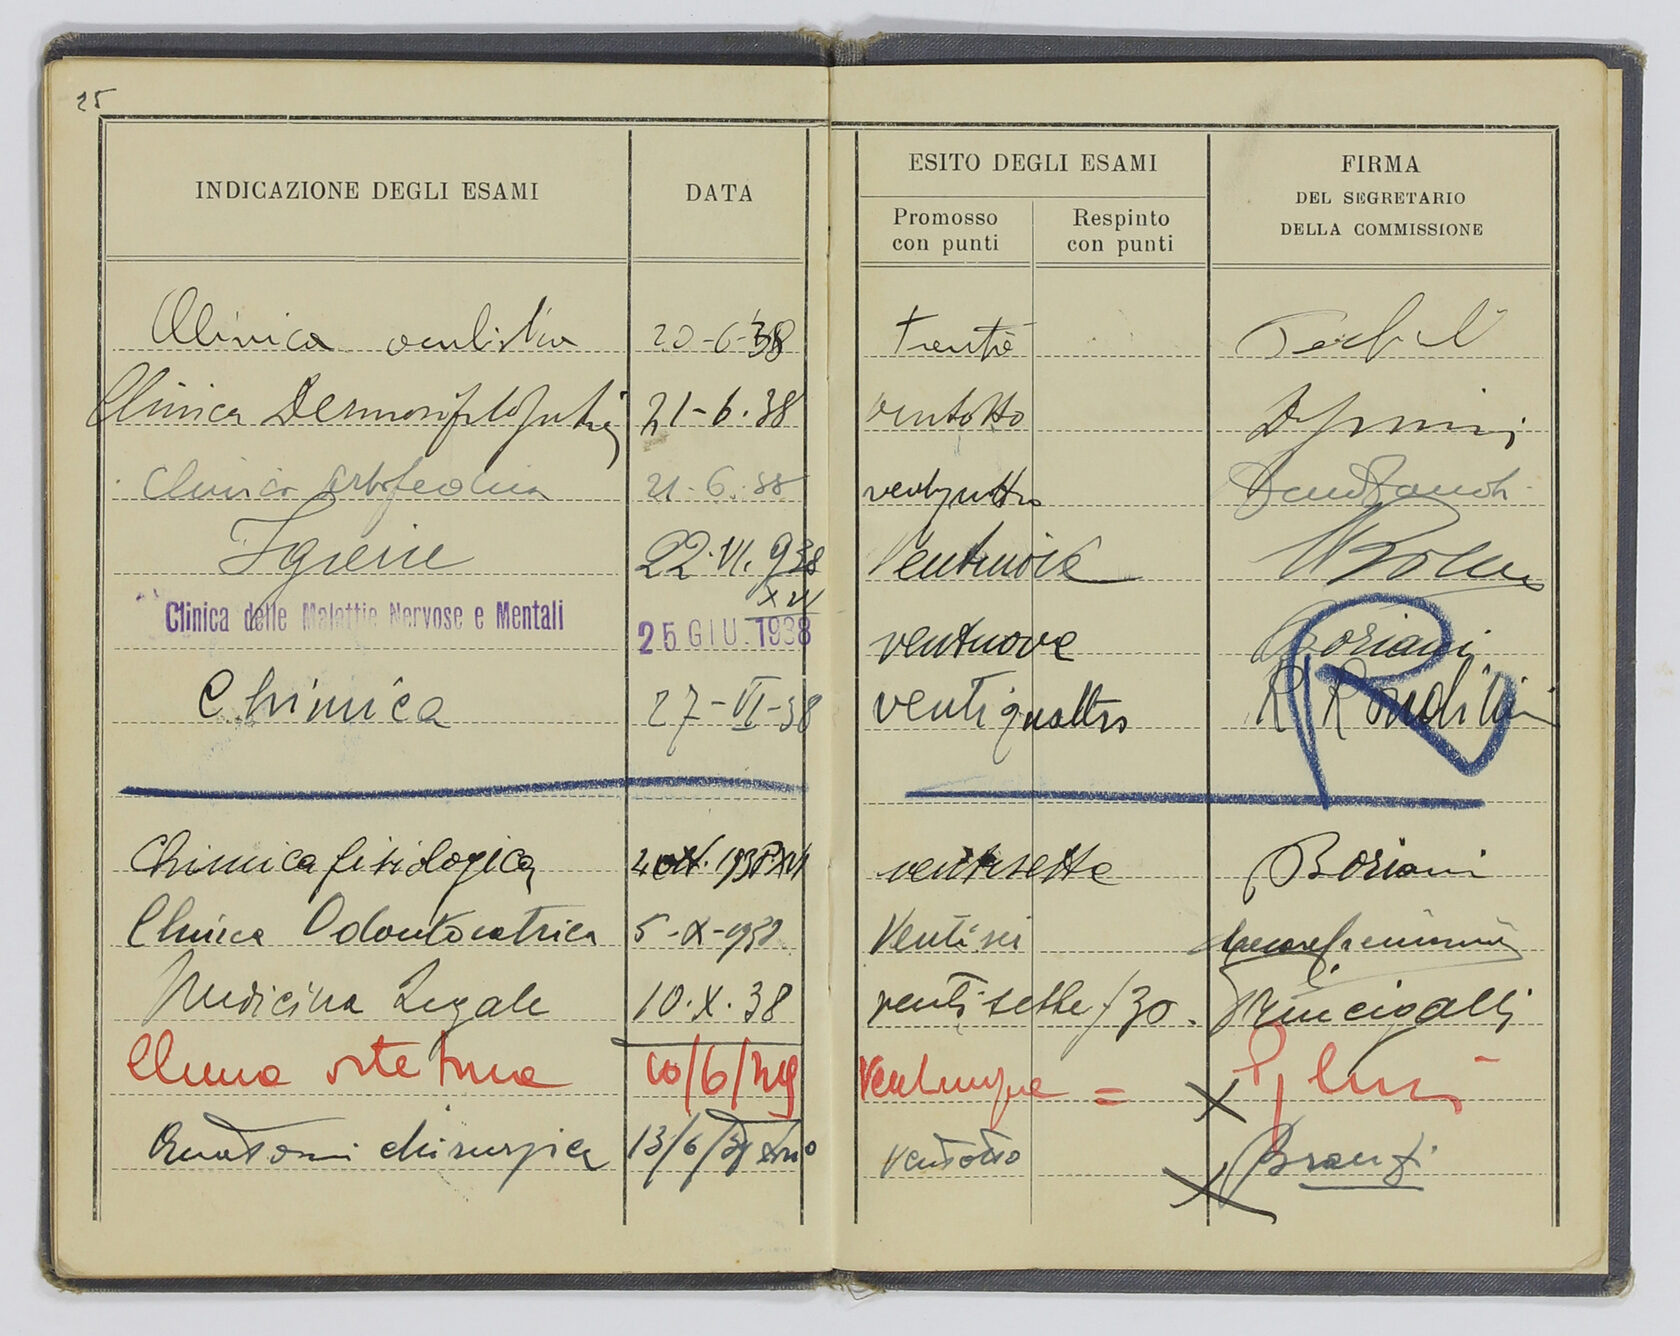 25
INDICAZIONE DEGLI ESAMI DATA ESITO DEGLI ESAMI FIRMA
DEL SEGRETARIO
DELLA COMMISSIONE
Promosso con punti Respinto con punti
Clinica oculistica 20-6-38 trenta
Clinica Dermosifilopatica 21-6.38 ventotto
Clinica ortopedica 21-6.38 ventiquattro
Igiene 22.VI.938 XVI ventinove
Clinica delle Malattie Nervose e Mentali 25 GIU. 1938 ventinove Boriani
Chimica 27-VI-38 ventiquattro R
Chimica fisiologica 4 ott. 1938.XVI ventisette Boriani
Clinica Odontoiatrica 5-X-1938 Ventisei
Medicina Legale 10.X.38 ventisette/30.
Clinica ostetrica 10/6/39 Venticinque =
Anatomia chirurgica 13/6/39 ventotto